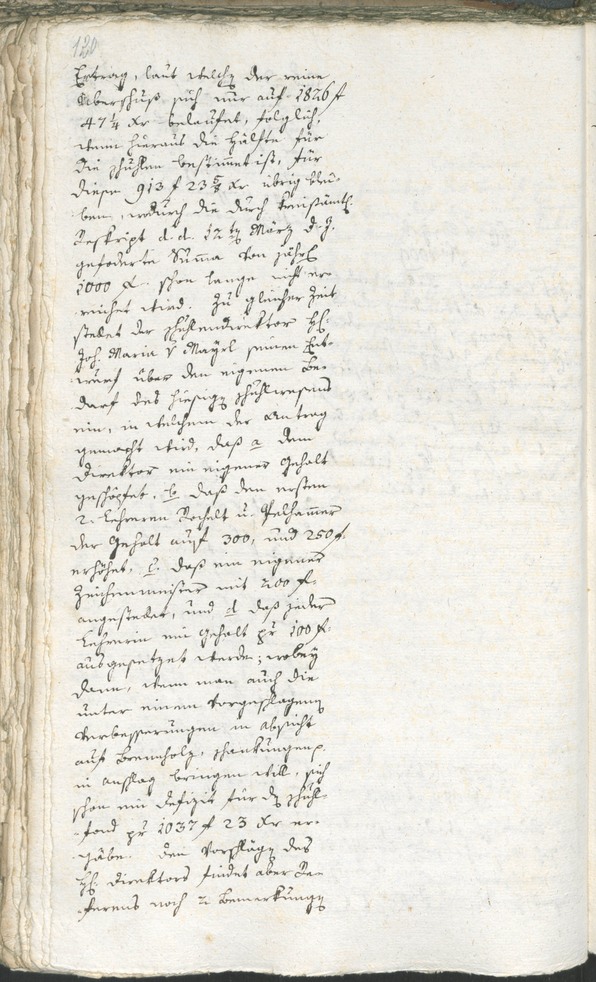 120
Ertrag, laut welch der reine
Überschuß sich nur auf 1826 f
47¼ Xr belaufet, folglich,
wenn hieraus die Hälfte für
die Schuhlen bestimmet ist, für
diese 913 f 23⅝ Xr übrig blei-
ben, wodurch die durch Kreisämtl.
Reskript d. d. 12 März d. J.
geforderte Summa von jährl
1000 f. schon lange nicht er-
reichet wird. Zu gleicher Zeit
stellet der Schuhlendirektor H.
Joh. Maria v Mayrl seinen Ent-
wurf über den eigenen Be-
darf des hiesig Schuhlwesens
ein, in welchem der Antrag
gemacht wird, daß a dem
Direktor ein eigener Gehalt
geschöpfet, b. daß den ersten
2. Lehreren Rochelt u.
der Gehalt auf 300, und 250 f.
erhöhet, c. daß ein eigener
Zeichenmeister mit 200 f.
angestellet, und d daß jeder
Lehrerin ein Gehalt pr 100 f.
ausgesetzet werde; wobey
dann, wenn man auch die
unter einem vorgeschlagenen
Verbesserungen in Absicht
auf Brennholz, Schankungen
in Anschlag bringen will, sich
schon ein Defizit für den Schuhl-
fond pr 1037 f 23 Xr er-
gäbe. Den Vorschläg des
H. Direktors findet aber Re-
ferens noch 2 Bemerkung